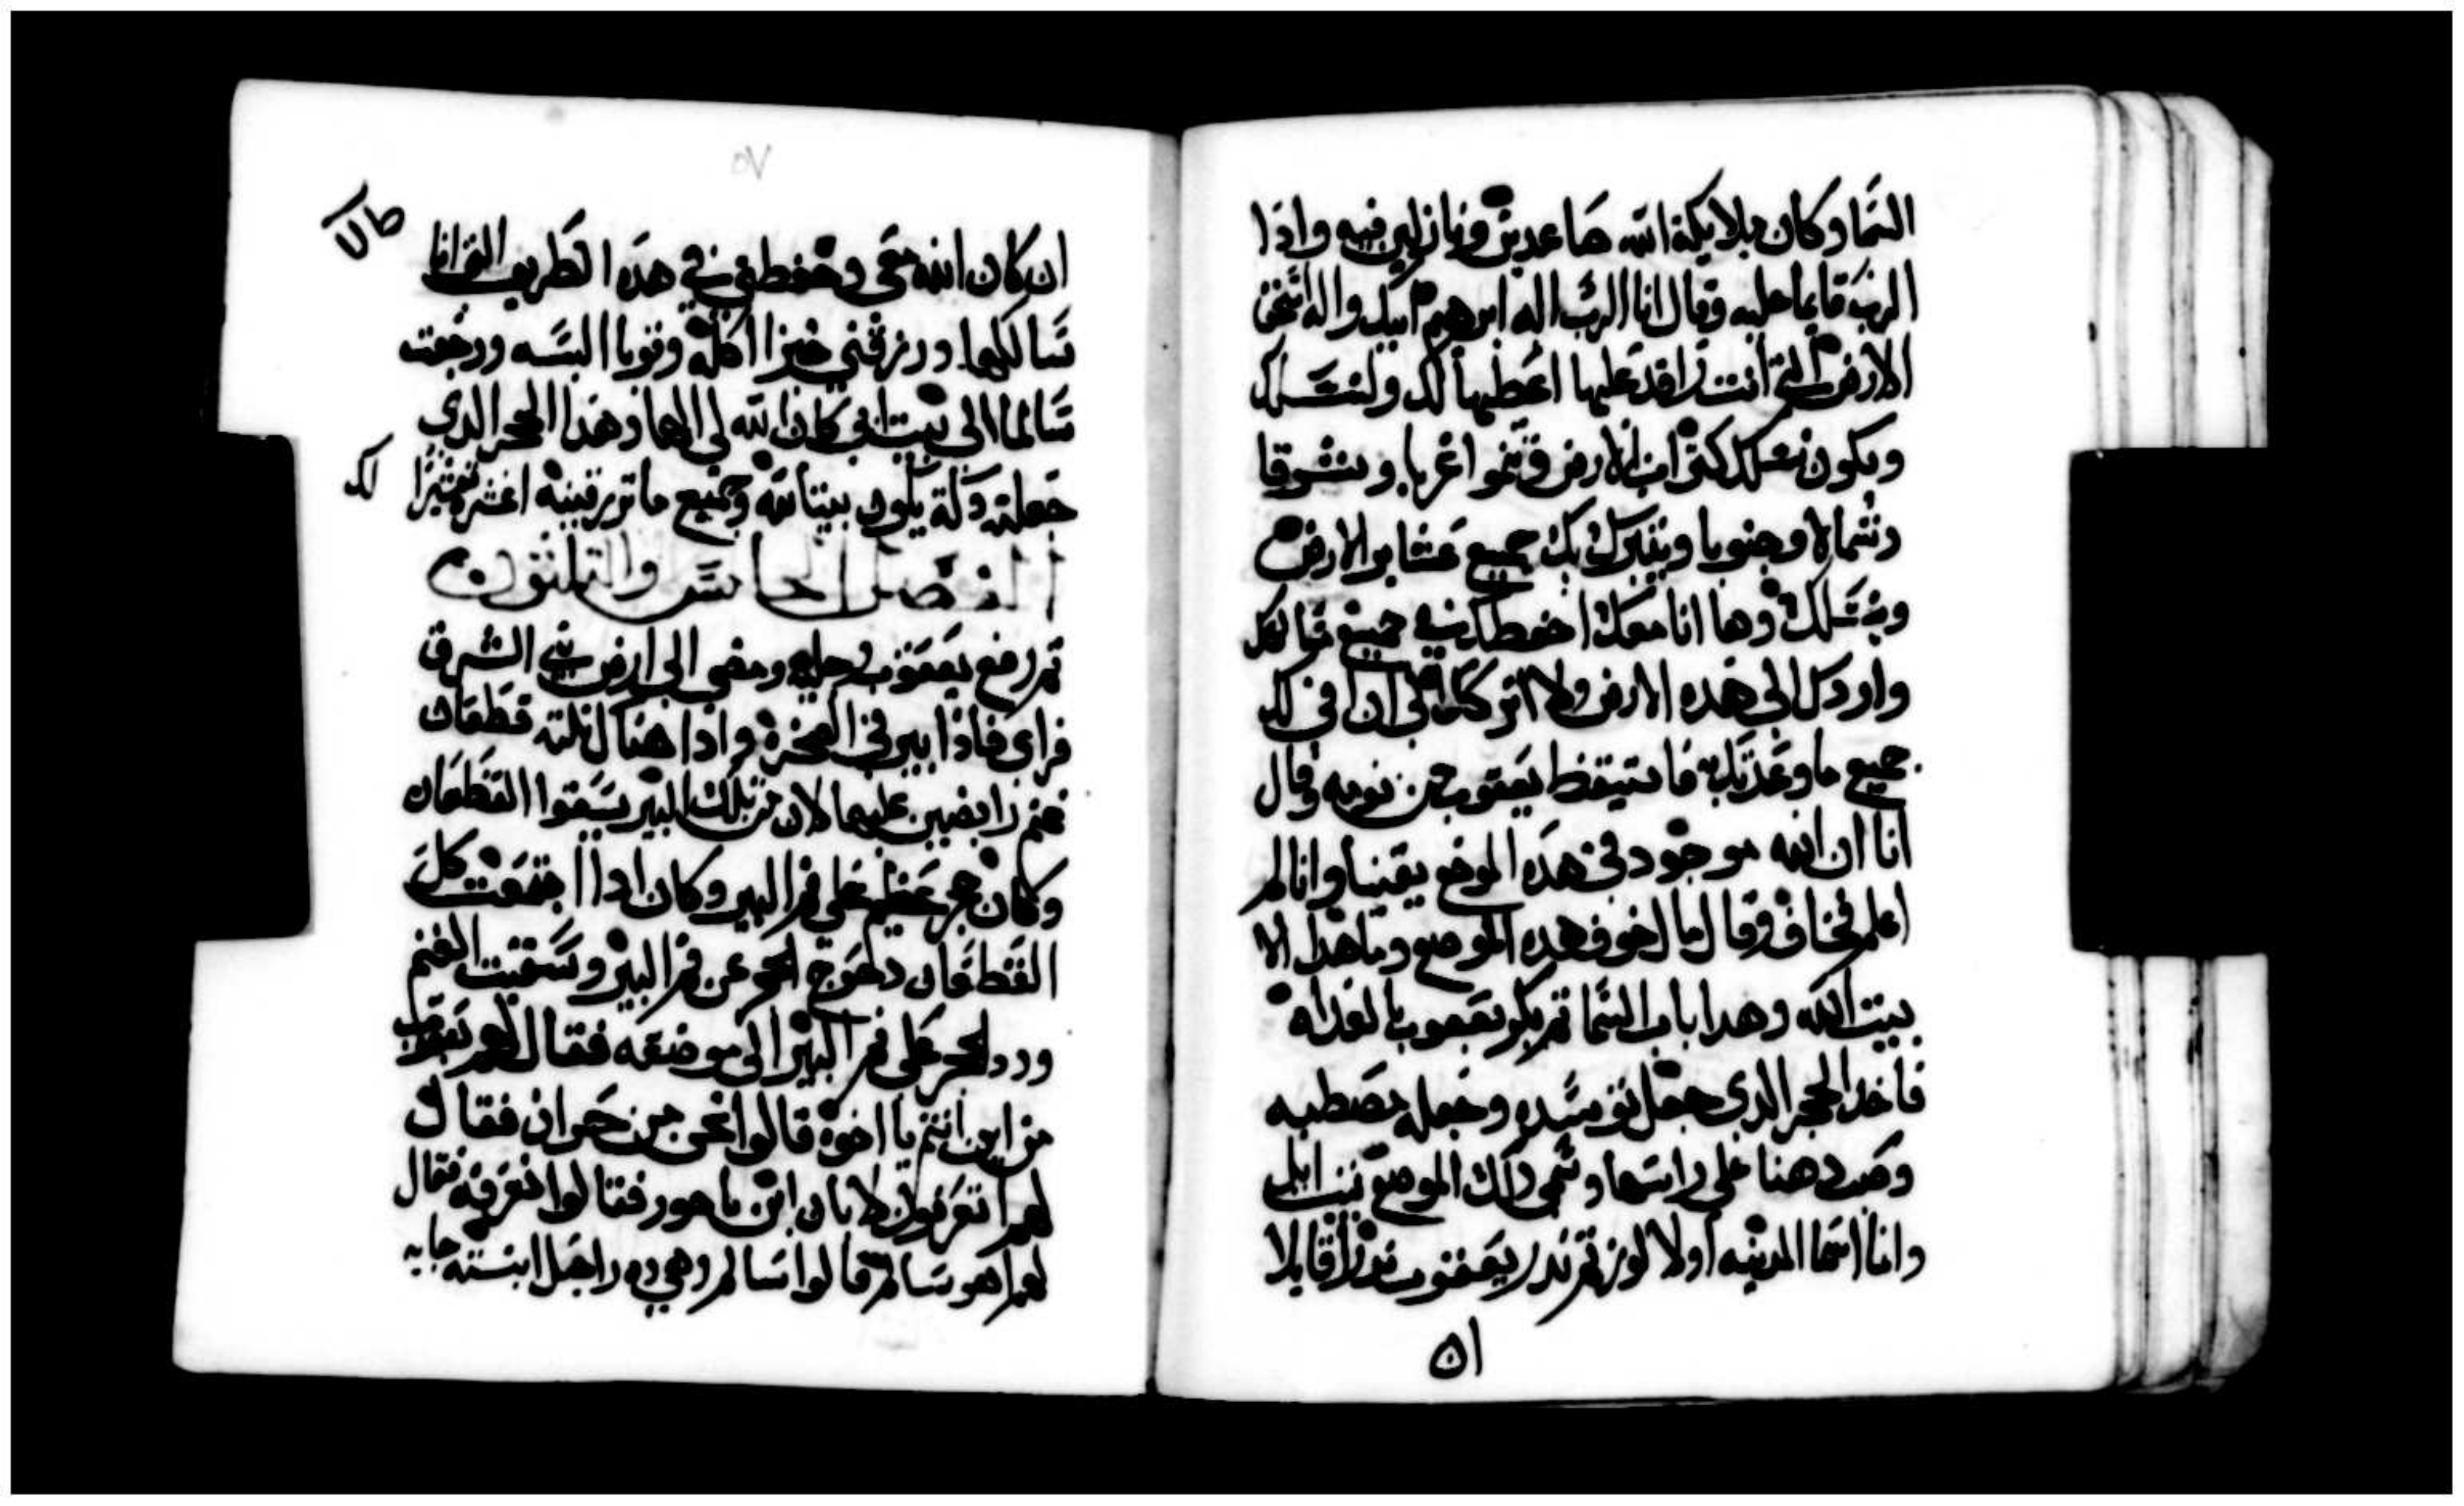 السما وكان ملايكة الله صاعدين ونازلين فيه واذا
الرب قايما عليه وقال انا الرب اله ابرهيم ابيك واله اسحق
الارض التي انت راقد عليها اعطيها لك ولنسلك
ويكون نسلك كتراب الارض وتنموا غربا وشرقا
وشمالا وجنوبا ويتبرك بك جميع عشاير الارض
وبنسلك وها انا معك احفظك في جميع
واردك الي هذه الارض ولا اتركك الي ان افي لك
جميع ما وعدتك به فاستيقظ يعقوب من نومه وقال
انا ان الله موجود في هذه الموضع يقينا وانا لم
اعلم فخاف وقال ما اخوف هذه الموضع وما هذا الا
بيت الله وهدا باب السما ثم بكر يعقوب بالغداه
فاخد الحجر الدي جعل توسده وجعله مصطبه
وصب دهنا علي راسها وسمي ذلك الموضع بيت ايل
وانا اسما المدينه اولا لوز ثم ندر يعقوب ندرا قايلا
٥١
٥٧
ان كان الله معي وحفظني في هذه الطريق التي انا
سالكها ورزقني خبزا اكله وثوبا البسه ورجعت
سالما الي بيت ابي كان الله لي الها وهذا الحجر الدي
جعلته دكة يكون بيتا لله وجميع ما ترزقينه اعشره تعشيرا
لك
الفصل الخامس والثلثون
ثم رفع يعقوب رجليه ومضي الي ارض بني الشرق
فراي فاذا بير في الصخرة واذا هناك ثلثه قطعان
غنم رابضين عليها لان من تلك البير يسقوا القطعان
وكان حجر عظيم علي فم البير وكان ادا اجتمعت كل
القطعان دحرج الحجر عن فم البير وسقيت الغنم
ورد الحجر علي فم البير الي موضعه فقال لهم يعقوب
من اين انتم يا اخوة قالوا نحن من حران فقال
لهم اتعرفون لابان ابن ناحور فقالوا نعرفه فقال
لهم اهو سالم قالوا سالم وهي ده راحل ابنته جايه